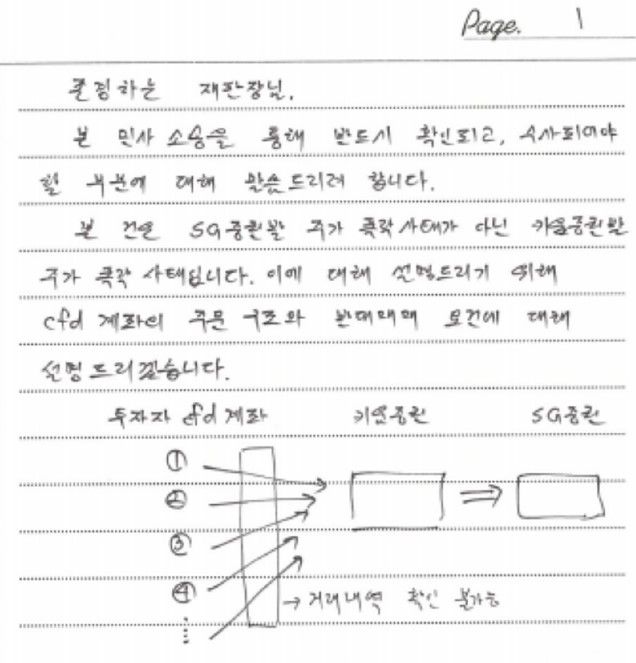 Page. 1
존경하는 재판장님.
본 민사 소송을 통해 반드시 확인되고, 수사되어야
할 부분에 대해 말씀드리려 합니다.
본 건은 SG증권발 주가 폭락사태가 아닌 키움증권발
주가 폭락 사태입니다. 이에 대해 설명드리기 위해
cfd 계좌의 주문 구조와 반대매매 요건에 대해
설명드리겠습니다.
투자자 cfd 계좌 키움증권 SG증권
①
②
③
④
⋮
→ 거래내역 확인 불가능